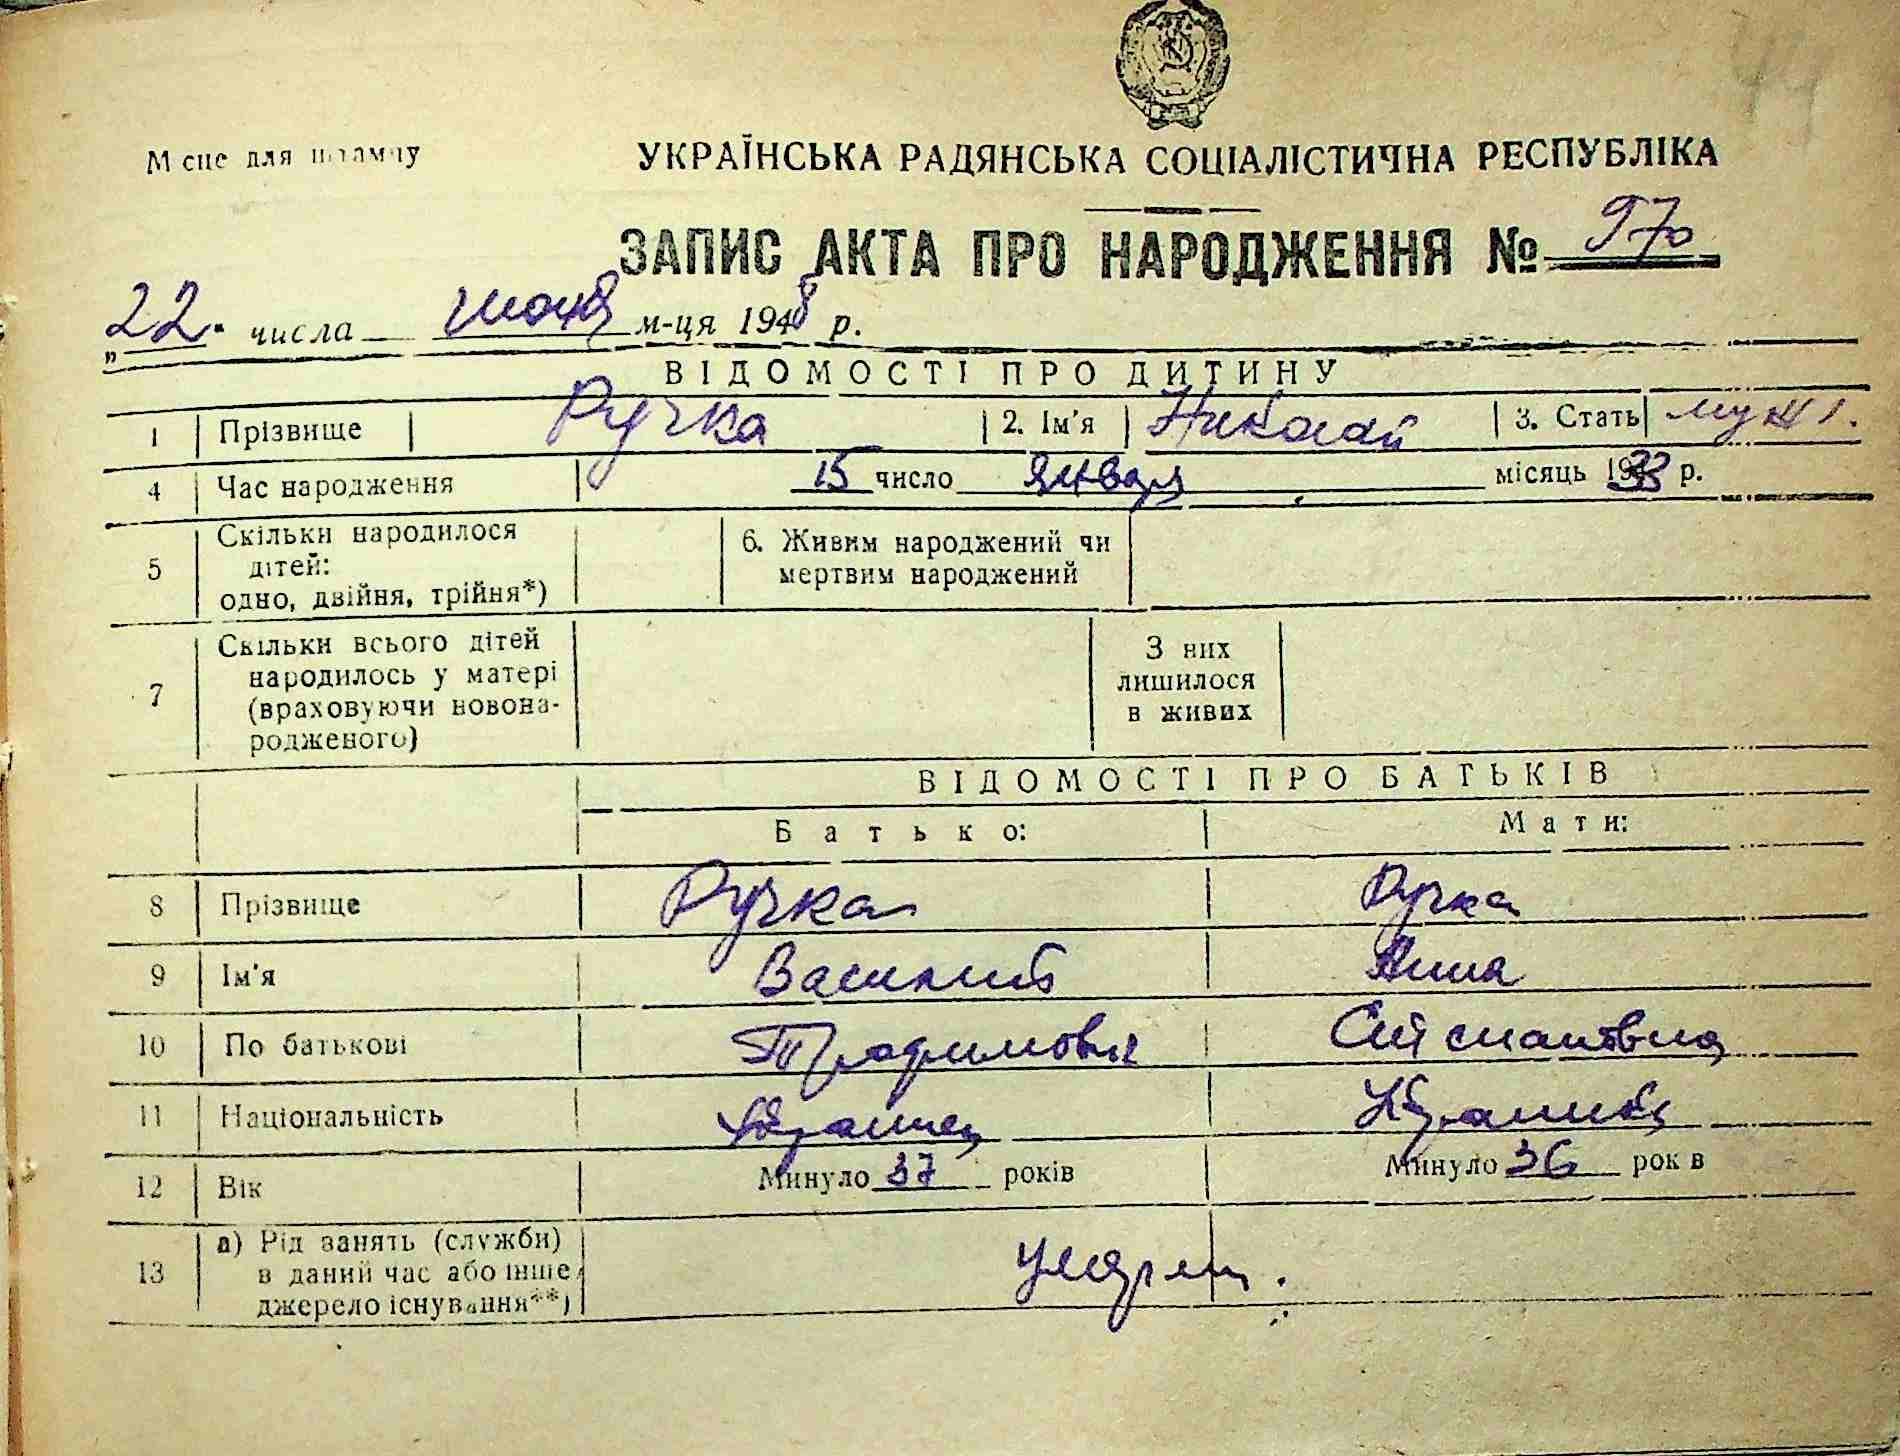 Місце для штампу
УКРАЇНСЬКА РАДЯНСЬКА СОЦІАЛІСТИЧНА РЕСПУБЛІКА
ЗАПИС АКТА ПРО НАРОДЖЕННЯ № 970
„22. числа июня м-ця 1948 р.
ВІДОМОСТІ ПРО ДИТИНУ
1 Прізвище Ручка 2. Ім'я Николай 3. Стать муж.
4 Час народження 15 число января місяць 1933 р.
5 Скільки народилося дітей: одно, двійня, трійня*) 6. Живим народжений чи мертвим народжений
7 Скільки всього дітей народилось у матері (враховуючи новонародженого) З них лишилося в живих
ВІДОМОСТІ ПРО БАТЬКІВ
Батько: Мати:
8 Прізвище Ручка Ручка
9 Ім'я Василий Анна
10 По батькові Трафимович
11 Національність Украинец Украинка
12 Вік Минуло 37 років Минуло 36 років
13 а) Рід занять (служби) в даний час або інше джерело існування**)